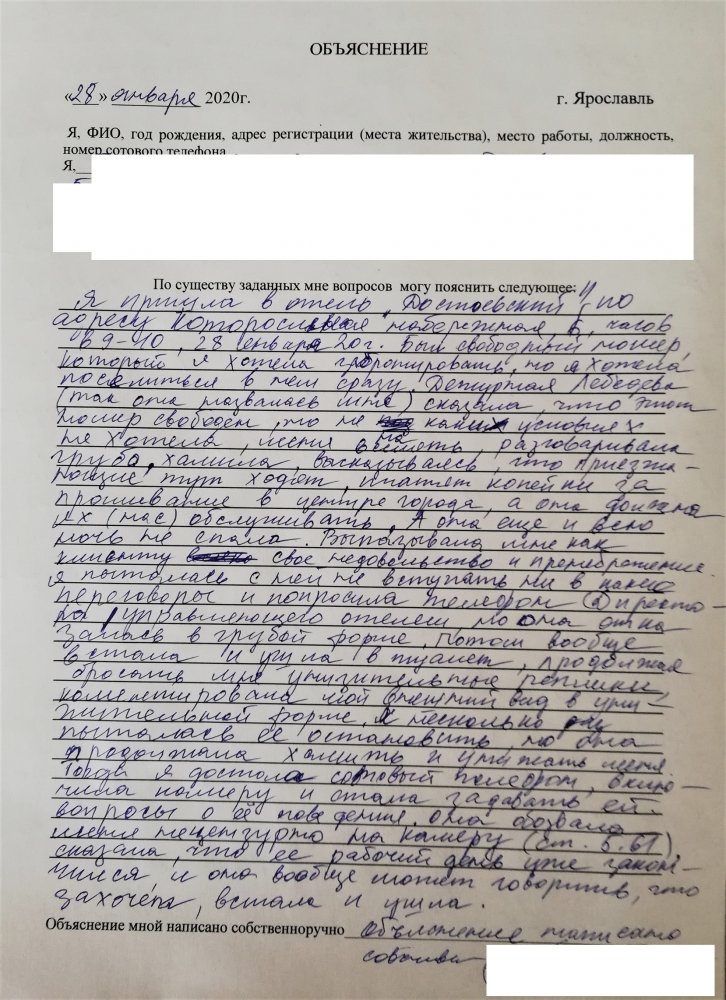 ОБЪЯСНЕНИЕ
«28» января 2020г. г. Ярославль
Я, ФИО, год рождения, адрес регистрации (места жительства), место работы, должность,
номер сотового телефона
Я,
По существу заданных мне вопросов могу пояснить следующее:
Я пришла в отель "Достоевский" по
адресу Которосльная набережная, часов
в 9-10, 28 января 20г. Был свободный номер,
который я хотела забронировать, но я хотела
поселиться в нем сразу. Дежурная Лебедева
(так она назвалась мне) сказала, что этот
номер свободен, но не каких условиях
не хотела, меня разговаривала
грубо, хамила, высказываясь, что приезжа-
ющие тут ходят, платят копейки за
проживание в центре города, а она должна
их (нас) обслуживать. А она еще и всю
ночь не спала. Высказывала мне как
клиенту свое недовольство и пренебрежение
я пыталась с ней не вступать ни в какие
переговоры и попросила телефон директо-
ра, управляющего отелем но она отка
залась в грубой форме. Потом вообще
встала и ушла в туалет, продолжая
бросать мне унизительные реплики,
коментировала мой внешний вид в уни-
жительной форме, я несколько раз
пыталась ее остановить, но она
продолжала хамить и унижать меня.
Тогда я достала сотовый телефон, вклю-
чила камеру и стала задавать ей
вопросы о её поведении, она обозвала
меня нецензурно на камеру (ст. 5.61)
сказала, что ее рабочий день уже закон-
чился, и она вообще может говорить, что
захочет, встала и ушла.
Объяснение мной написано собственноручно Объяснение написано